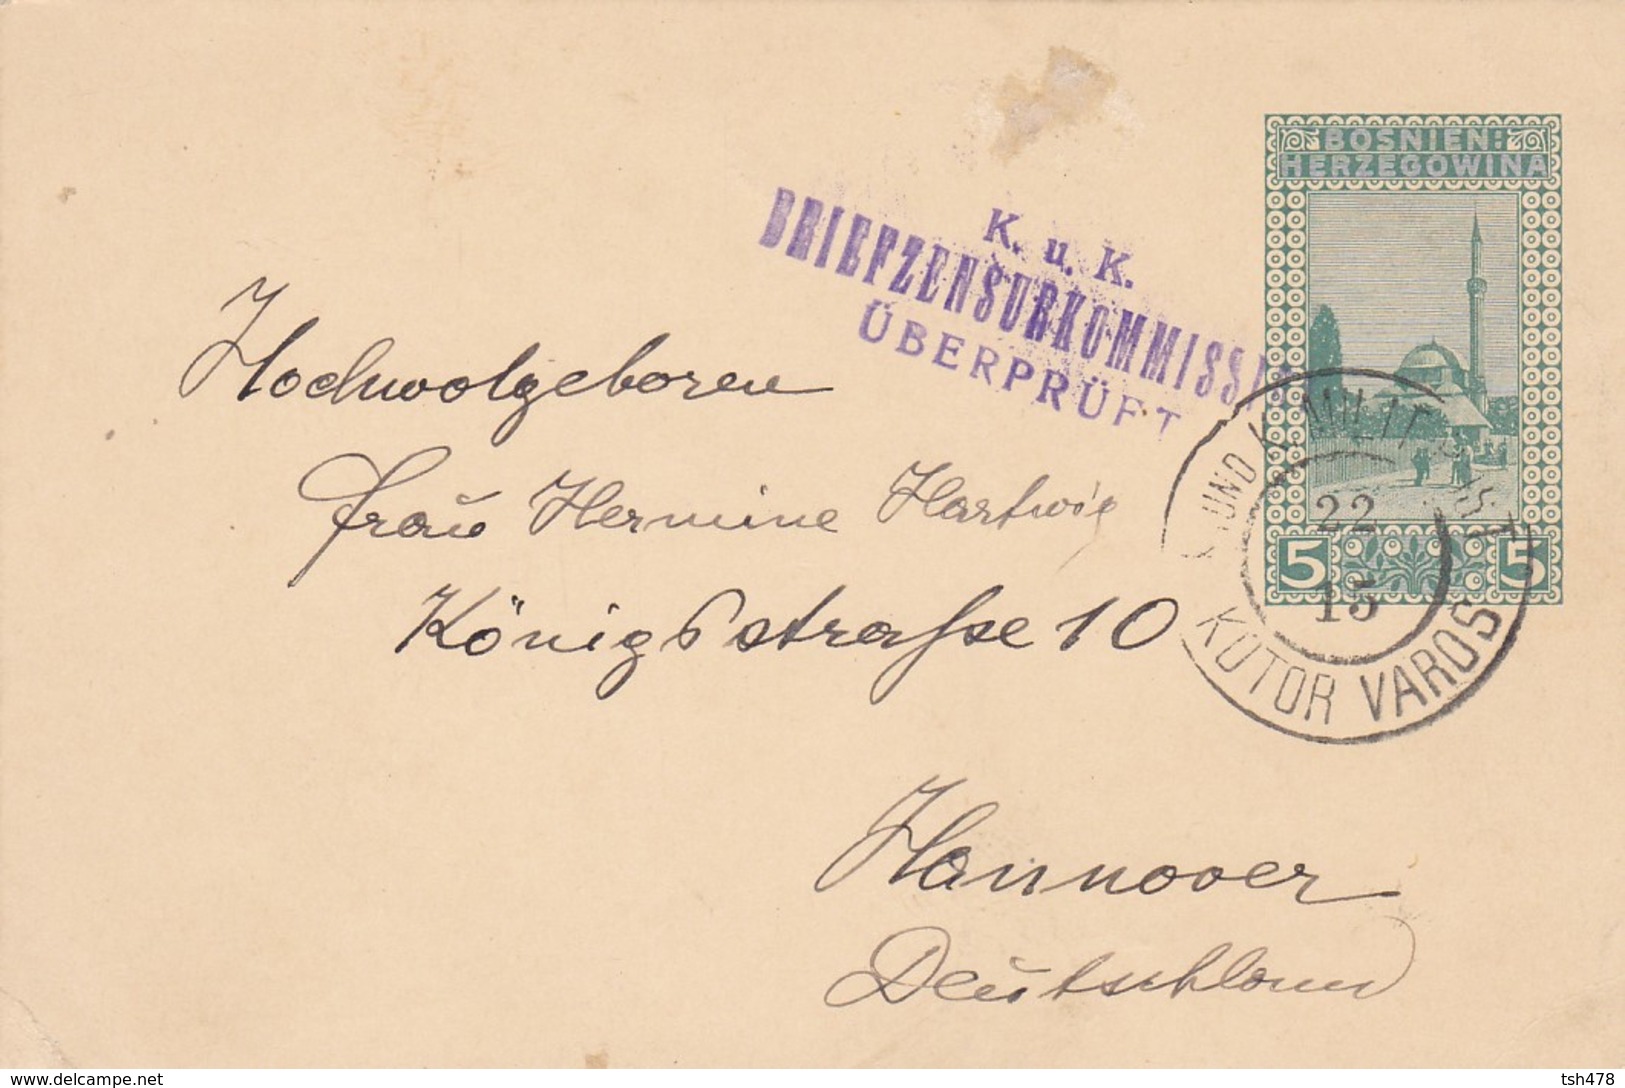 BOSNIEN:
HERZEGOWINA
K. u. K.
BRIEFZENSURKOMMISSI
ÜBERPRÜFT
Hochwolgeboren
Frau Hermine Hartwig
Königsstraße 10
Hannover
Deutschland
K. UND K. MILIT. POST
22
15
KOTOR VAROS
5 5
delcampe.net
tsh478